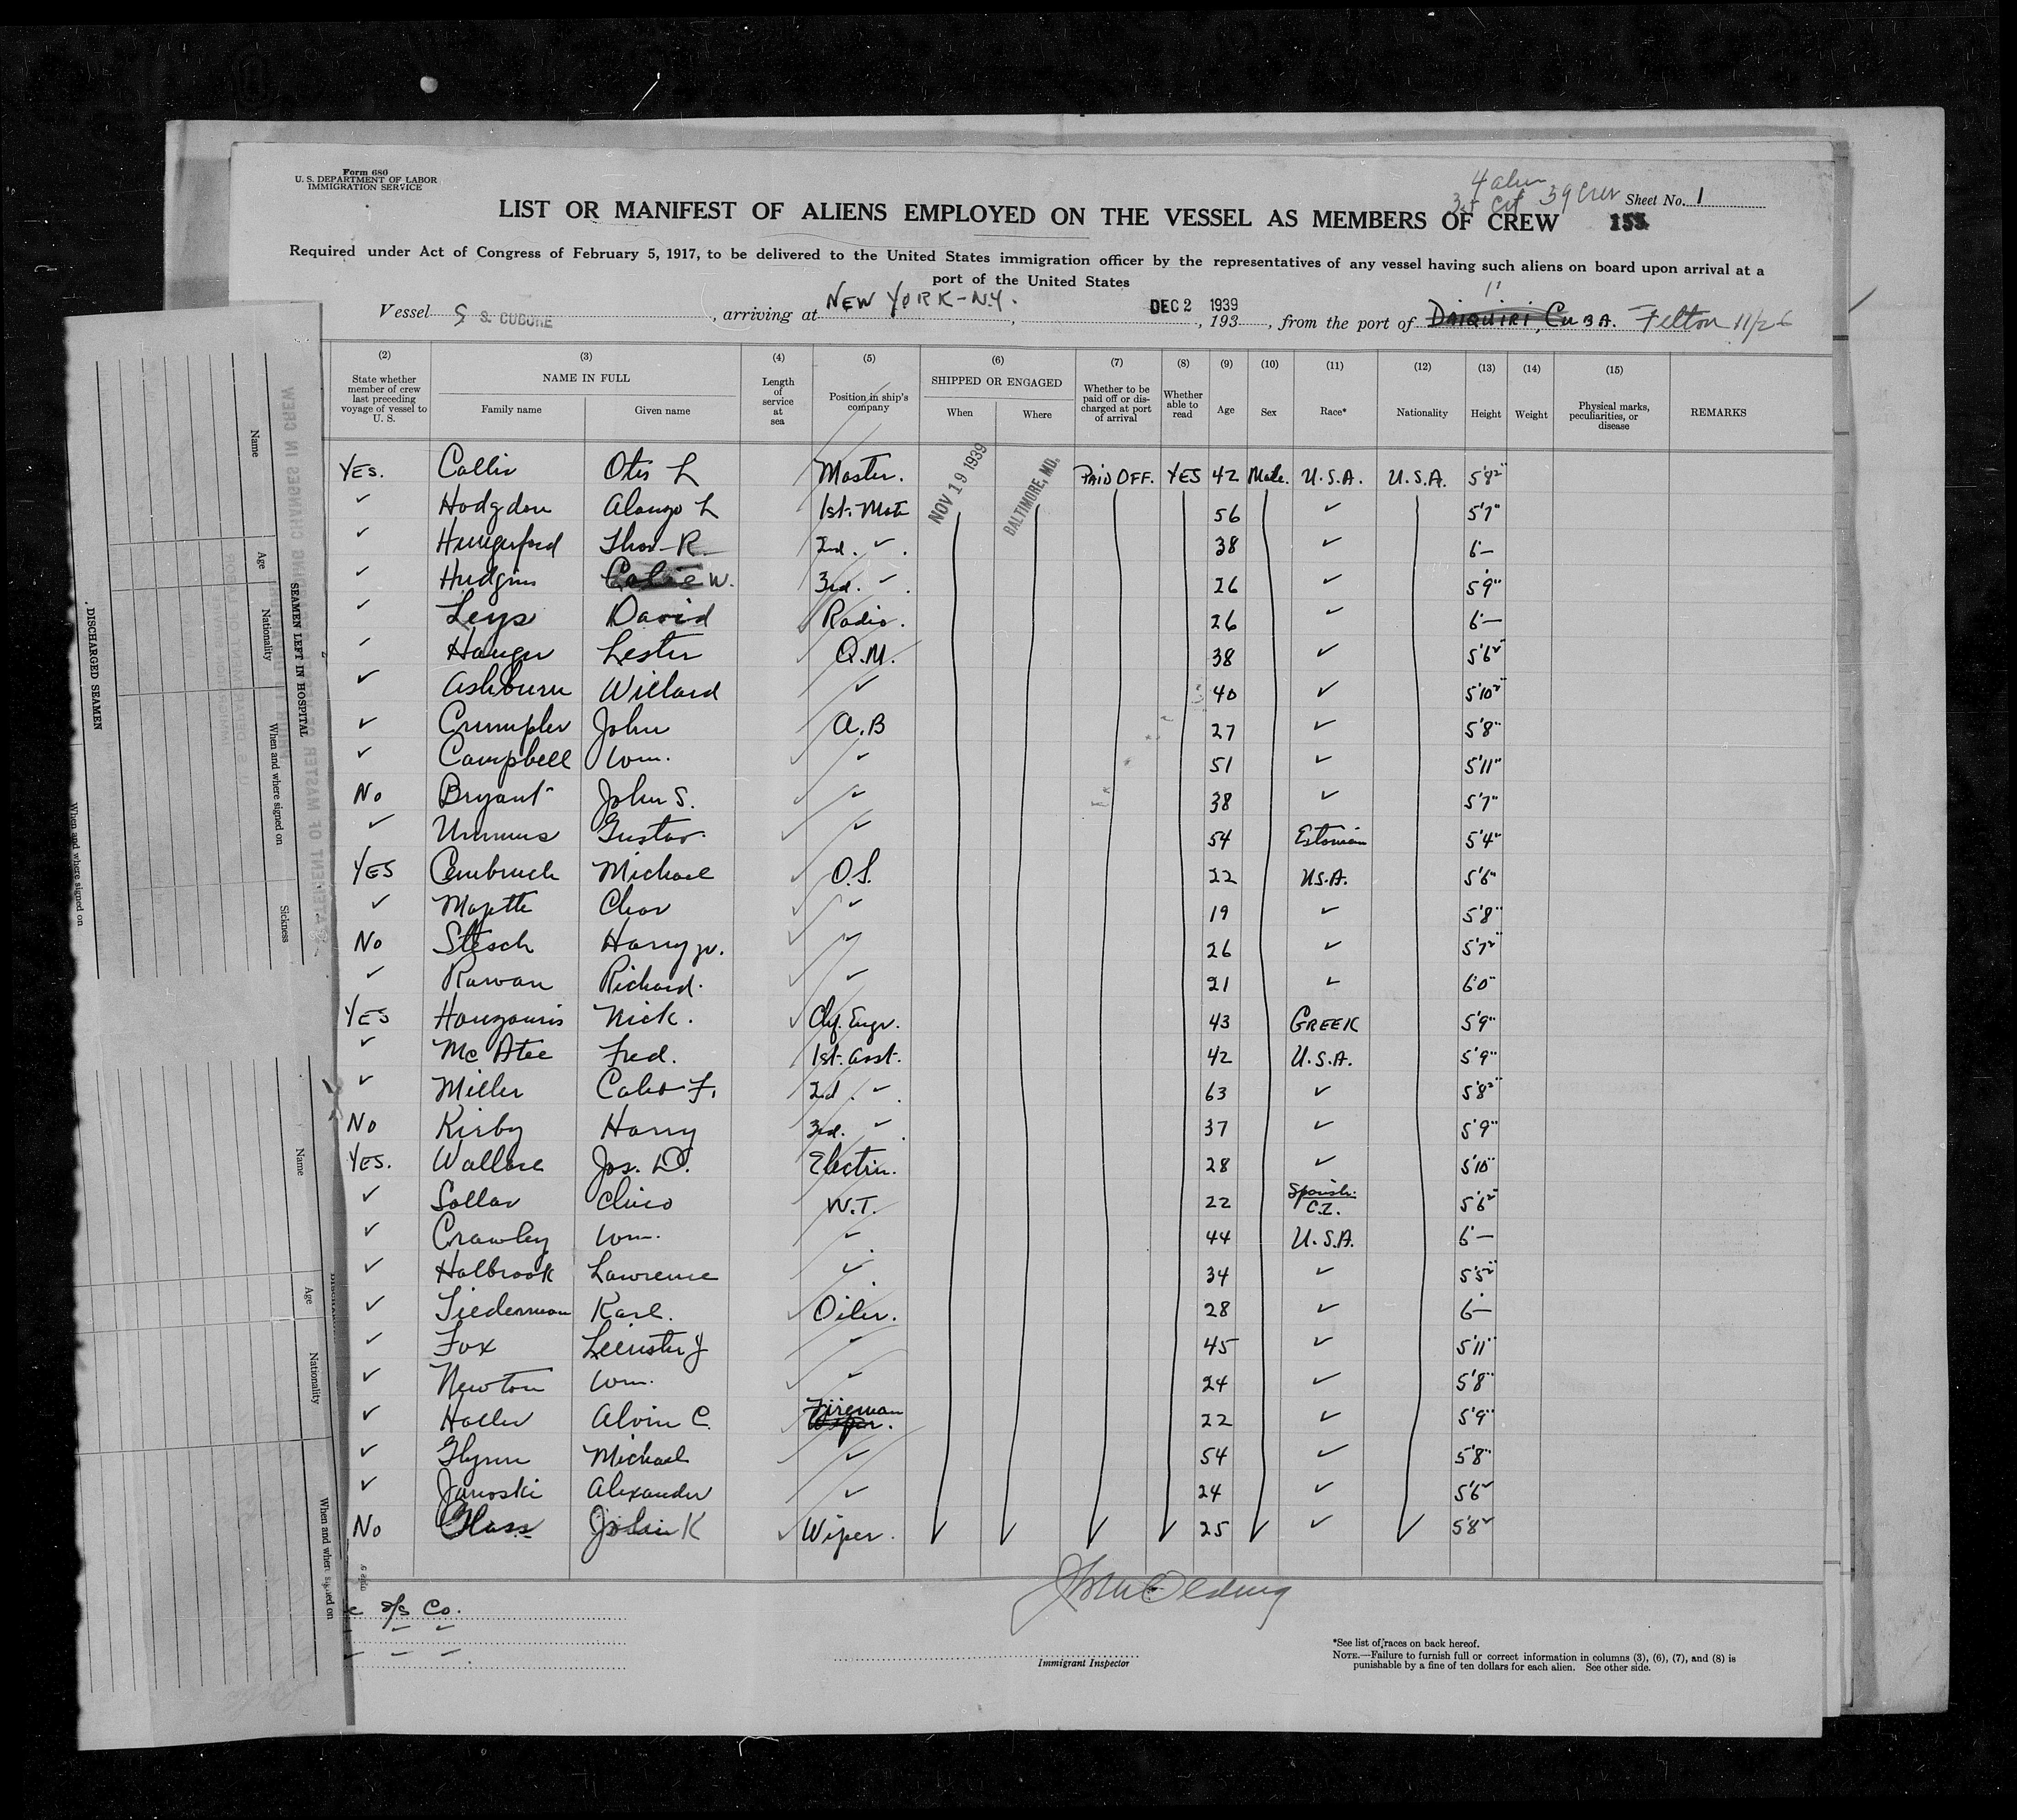 Form 680
U. S. DEPARTMENT OF LABOR
IMMIGRATION SERVICE
4 alien
39 Crew
Sheet No. 1
LIST OR MANIFEST OF ALIENS EMPLOYED ON THE VESSEL AS MEMBERS OF CREW 155
Required under Act of Congress of February 5, 1917, to be delivered to the United States immigration officer by the representatives of any vessel having such aliens on board upon arrival at a
port of the United States
Vessel S S. CUBORE, arriving at NEW YORK - N.Y., DEC 2 1939, 193, from the port of DAIQUIRI, CUBA. Felton 11/26
(2) (3) (4) (5) (6) (7) (8) (9) (10) (11) (12) (13) (14) (15)
State whether member of crew last preceding voyage of vessel to U. S.
NAME IN FULL
Family name Given name
Length of service at sea
Position in ship's company
SHIPPED OR ENGAGED
When Where
Whether to be paid off or discharged at port of arrival
Whether able to read
Age Sex Race* Nationality Height Weight
Physical marks, peculiarities, or disease
REMARKS
NOV 19 1939
BALTIMORE, MD.
YES. Collir Otis L Master. PAID OFF. YES 42 Male. U.S.A. U.S.A. 5'8½"
✓ Hodgdon Alonzo L 1st. Mate 56 ✓ 5'7"
✓ Hungerford Thos R. 2nd. ✓ 38 ✓ 6'—
✓ Hudgins W. 3rd. ✓ 26 ✓ 5'9"
✓ Leys David Radio. 26 ✓ 6'—
✓ Hauger Lester Q.M. 38 ✓ 5'6½
✓ Ashburn Willard ✓ 40 ✓ 5'10½"
✓ Crumpler John A.B 27 ✓ 5'8"
✓ Campbell Wm. ✓ 51 ✓ 5'11"
No Bryant John S. ✓ 38 ✓ 5'7"
✓ Gustav. ✓ 54 Estonian 5'4"
YES Michael O.S. 22 U.S.A. 5'6"
✓ Majette Chas ✓ 19 ✓ 5'8"
No Stesch Harry jr. ✓ 26 ✓ 5'7½"
✓ Rowan Richard. ✓ 21 ✓ 6'0"
YES Houzouris Nick. Chf. Engr. 43 GREEK 5'9"
✓ Mc Atee Fred. 1st. Asst. 42 U.S.A. 5'9"
✓ Miller F. 2nd. ✓ 63 ✓ 5'8½"
No Kirby Harry 3rd. ✓ 37 ✓ 5'9"
YES. Wallace Jos. D. Electrn. 28 ✓ 5'10"
✓ Sollar W.T. 22 Spanish. C.Z. 5'6½"
✓ Crawley Wm. ✓ 44 U.S.A. 6'—
✓ Holbrook Lawrence ✓ 34 ✓ 5'5½"
✓ Tiederman Karl. Oiler. 28 ✓ 6'—
✓ Fox Leinster J ✓ 45 ✓ 5'11"
✓ Newton Wm. ✓ 24 ✓ 5'8"
✓ Holler Alvin C. Fireman Wiper. 22 ✓ 5'9"
✓ Glynn Michael ✓ 54 ✓ 5'8"
✓ Janoski Alexander ✓ 24 ✓ 5'6"
No Glass John K Wiper. 25 ✓ 5'8"
S/S Co.
Immigrant Inspector
*See list of races on back hereof.
NOTE.—Failure to furnish full or correct information in columns (3), (6), (7), and (8) is
punishable by a fine of ten dollars for each alien. See other side.
DISCHARGED SEAMEN
When and where signed on
SEAMEN LEFT IN HOSPITAL
Name
Age
Nationality
When and where signed on
Sickness
Name
Age
Nationality
When and where signed on